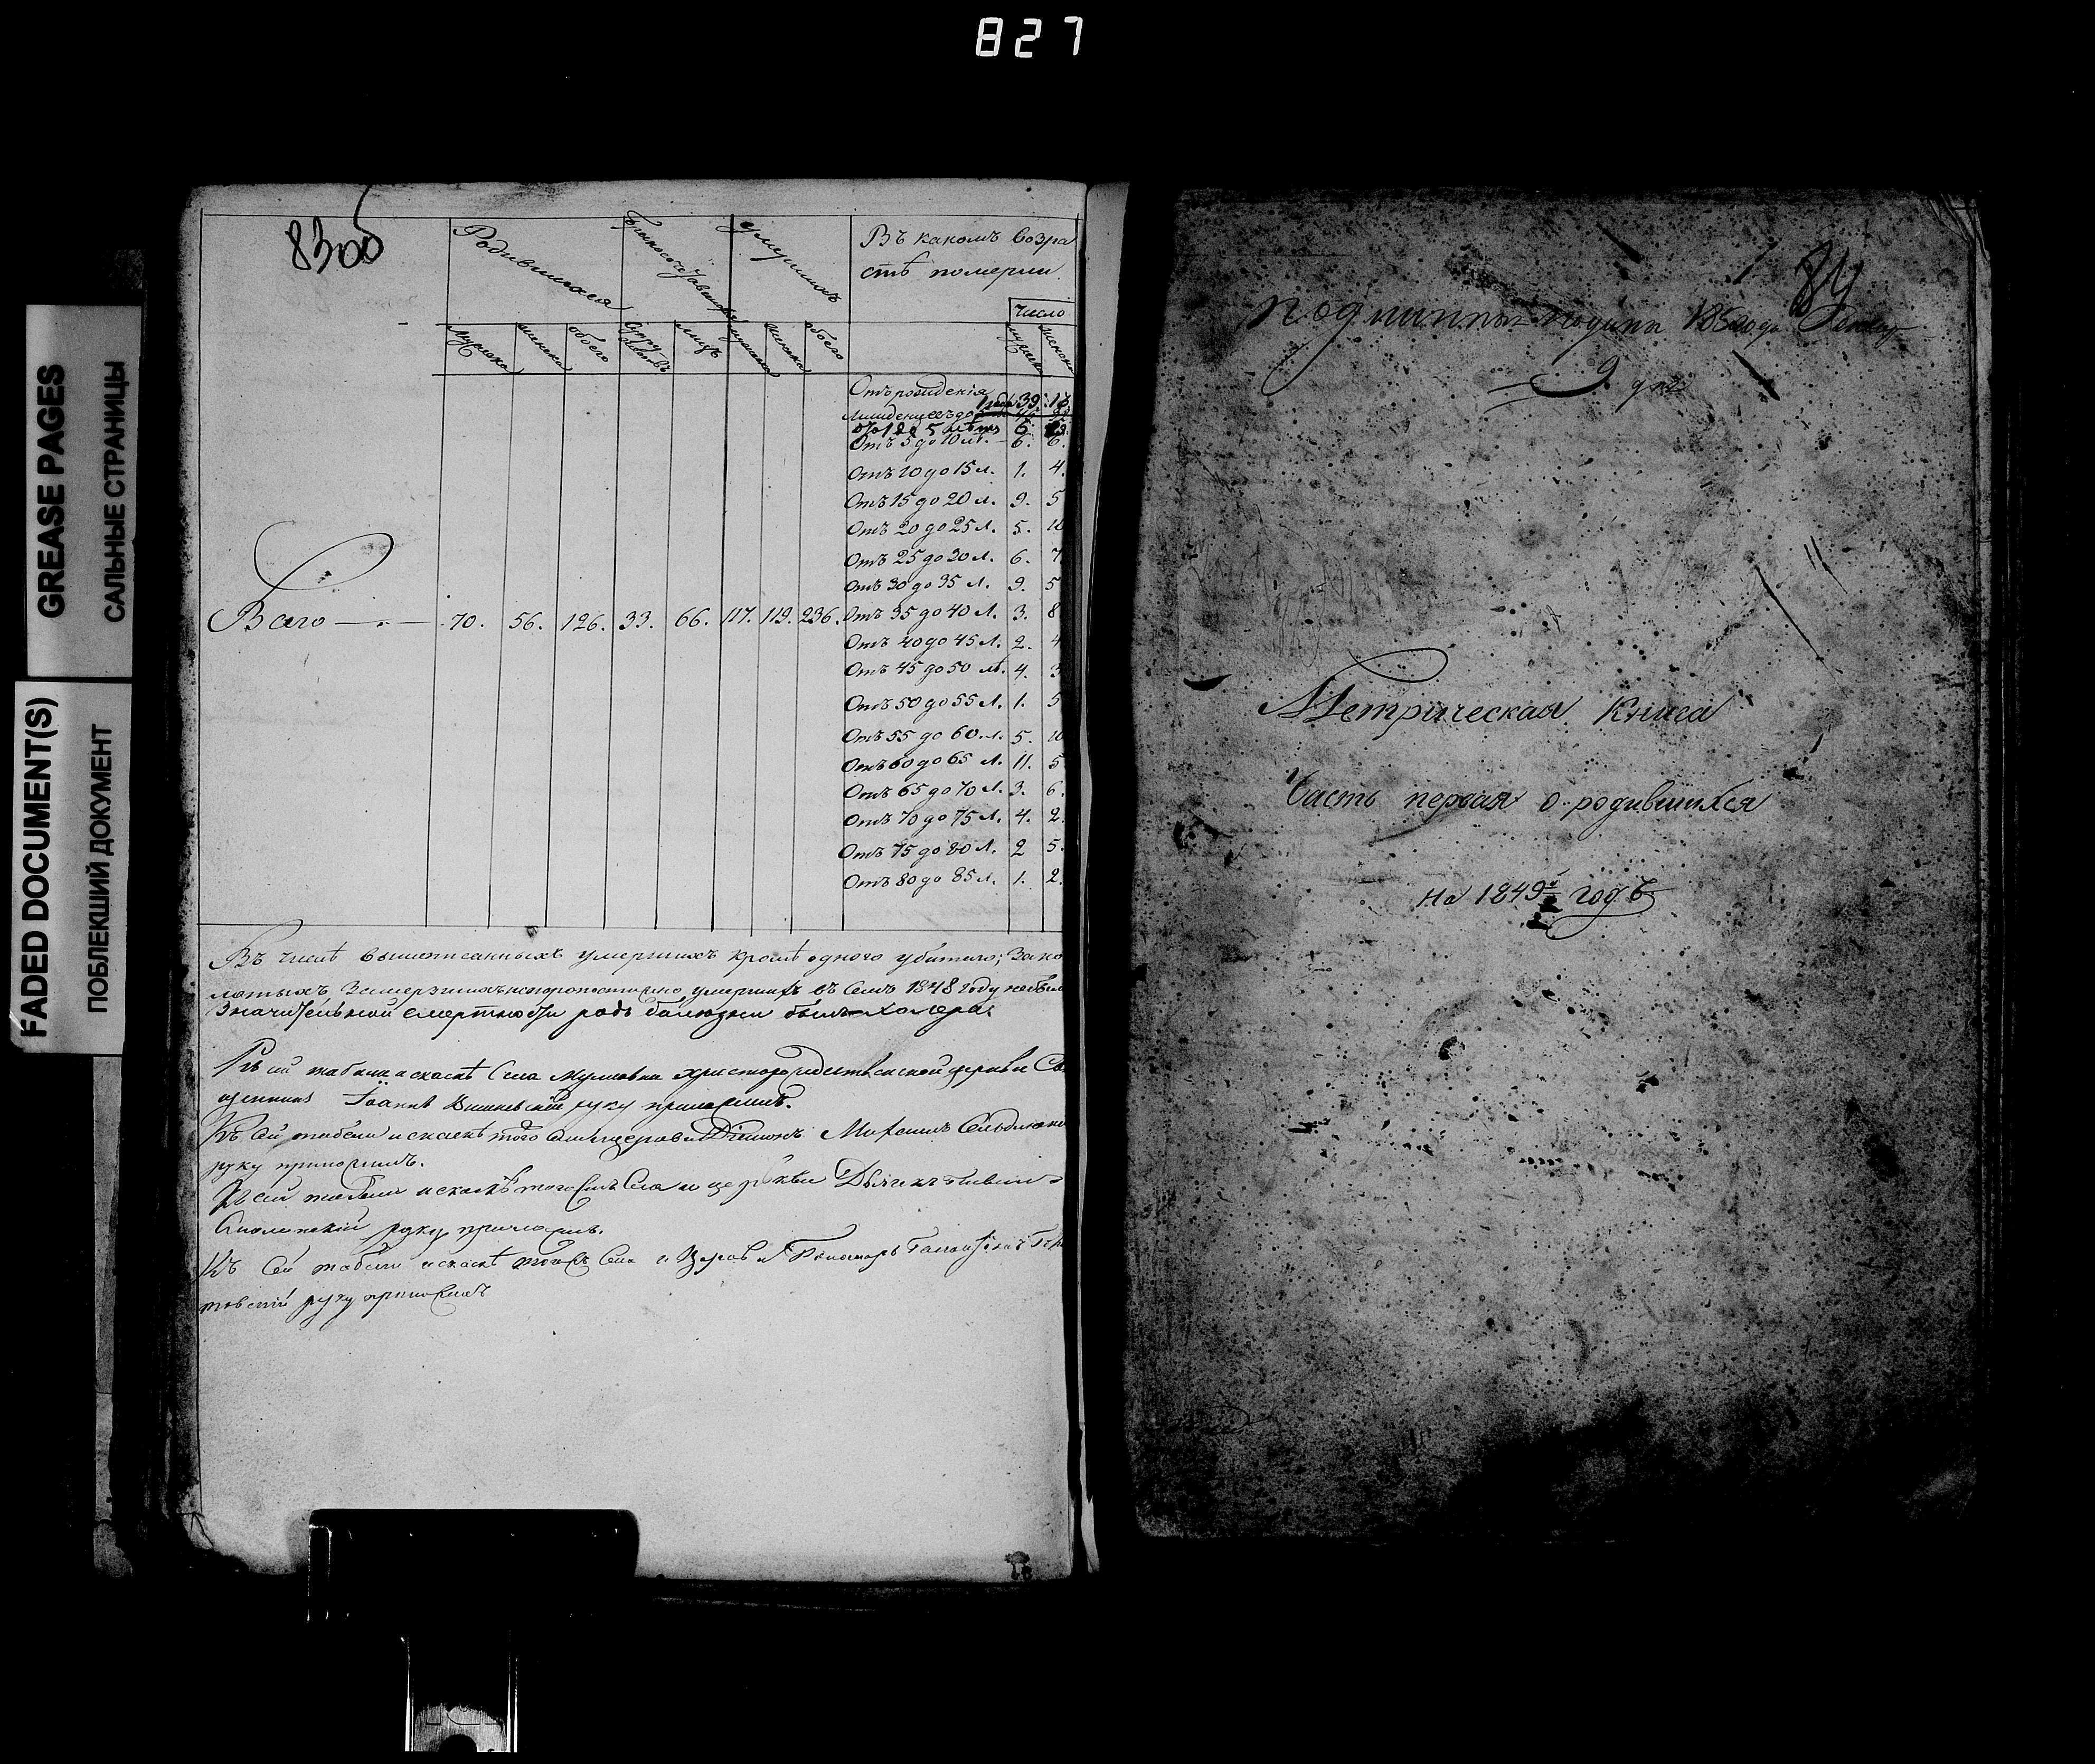 827
GREASE PAGES
САЛЬНЫЕ СТРАНИЦЫ
FADED DOCUMENT(S)
ПОБЛЕКШИЙ ДОКУМЕНТ
83об
Родившихся
умершихъ
Въ какомъ возра
стѣ померли.
Число
мужеска женска обоего лицъ мужеска женска обоего мужеска женска
Отъ рожденія
39. 13.
6.
Отъ 5 до 10 л. 6. 6.
Отъ 10 до 15 л. 1. 4.
Отъ 15 до 20 л. 9. 5
Отъ 20 до 25 л. 5. 10
Отъ 25 до 30 л. 6. 7
Отъ 30 до 35 л. 9. 5
Всего 70. 56. 126. 33. 66. 117. 119. 236. Отъ 35 до 40 л. 3. 8
Отъ 40 до 45 л. 2. 4
Отъ 45 до 50 лѣ. 4. 3
Отъ 50 до 55 л. 1. 5
Отъ 55 до 60 л. 5. 10
Отъ 60 до 65 л. 11. 5
Отъ 65 до 70 л. 3. 6.
Отъ 70 до 75 л. 4. 2.
Отъ 75 до 80 л. 2 5.
Отъ 80 до 85 л. 1. 2.
Въ числѣ вышеписанныхъ умершихъ кромѣ одного убитаго; зако
лотыхъ замерзшихъ скоропостижно умершихъ въ семъ 1848 году небыло
Значительной смертности родъ болѣзни былъ холера.
Къ сей табели и сказкѣ Села христорождественской церкви Свя
щенникъ Іоаннъ руку приложилъ.
Къ сей табели и сказкѣ того церкви Діаконъ Михаилъ
руку приложилъ.
Къ сей табели и сказкѣ тогожъ Села и церкви Дьячекъ
Смолинскій руку приложилъ.
Къ сей табели и сказкѣ тогожъ Села и Церкви Пономарь
руку приложилъ
84
1850 года
9 дня
Метрическая Книга
Часть первая о родившихся
на 1849й годъ